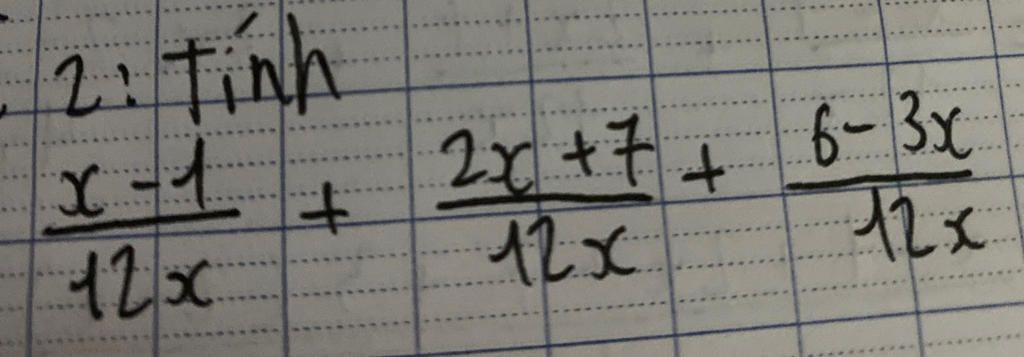 2: Tính
x - 1 / 12x + 2x + 7 / 12x + 6 - 3x / 12x